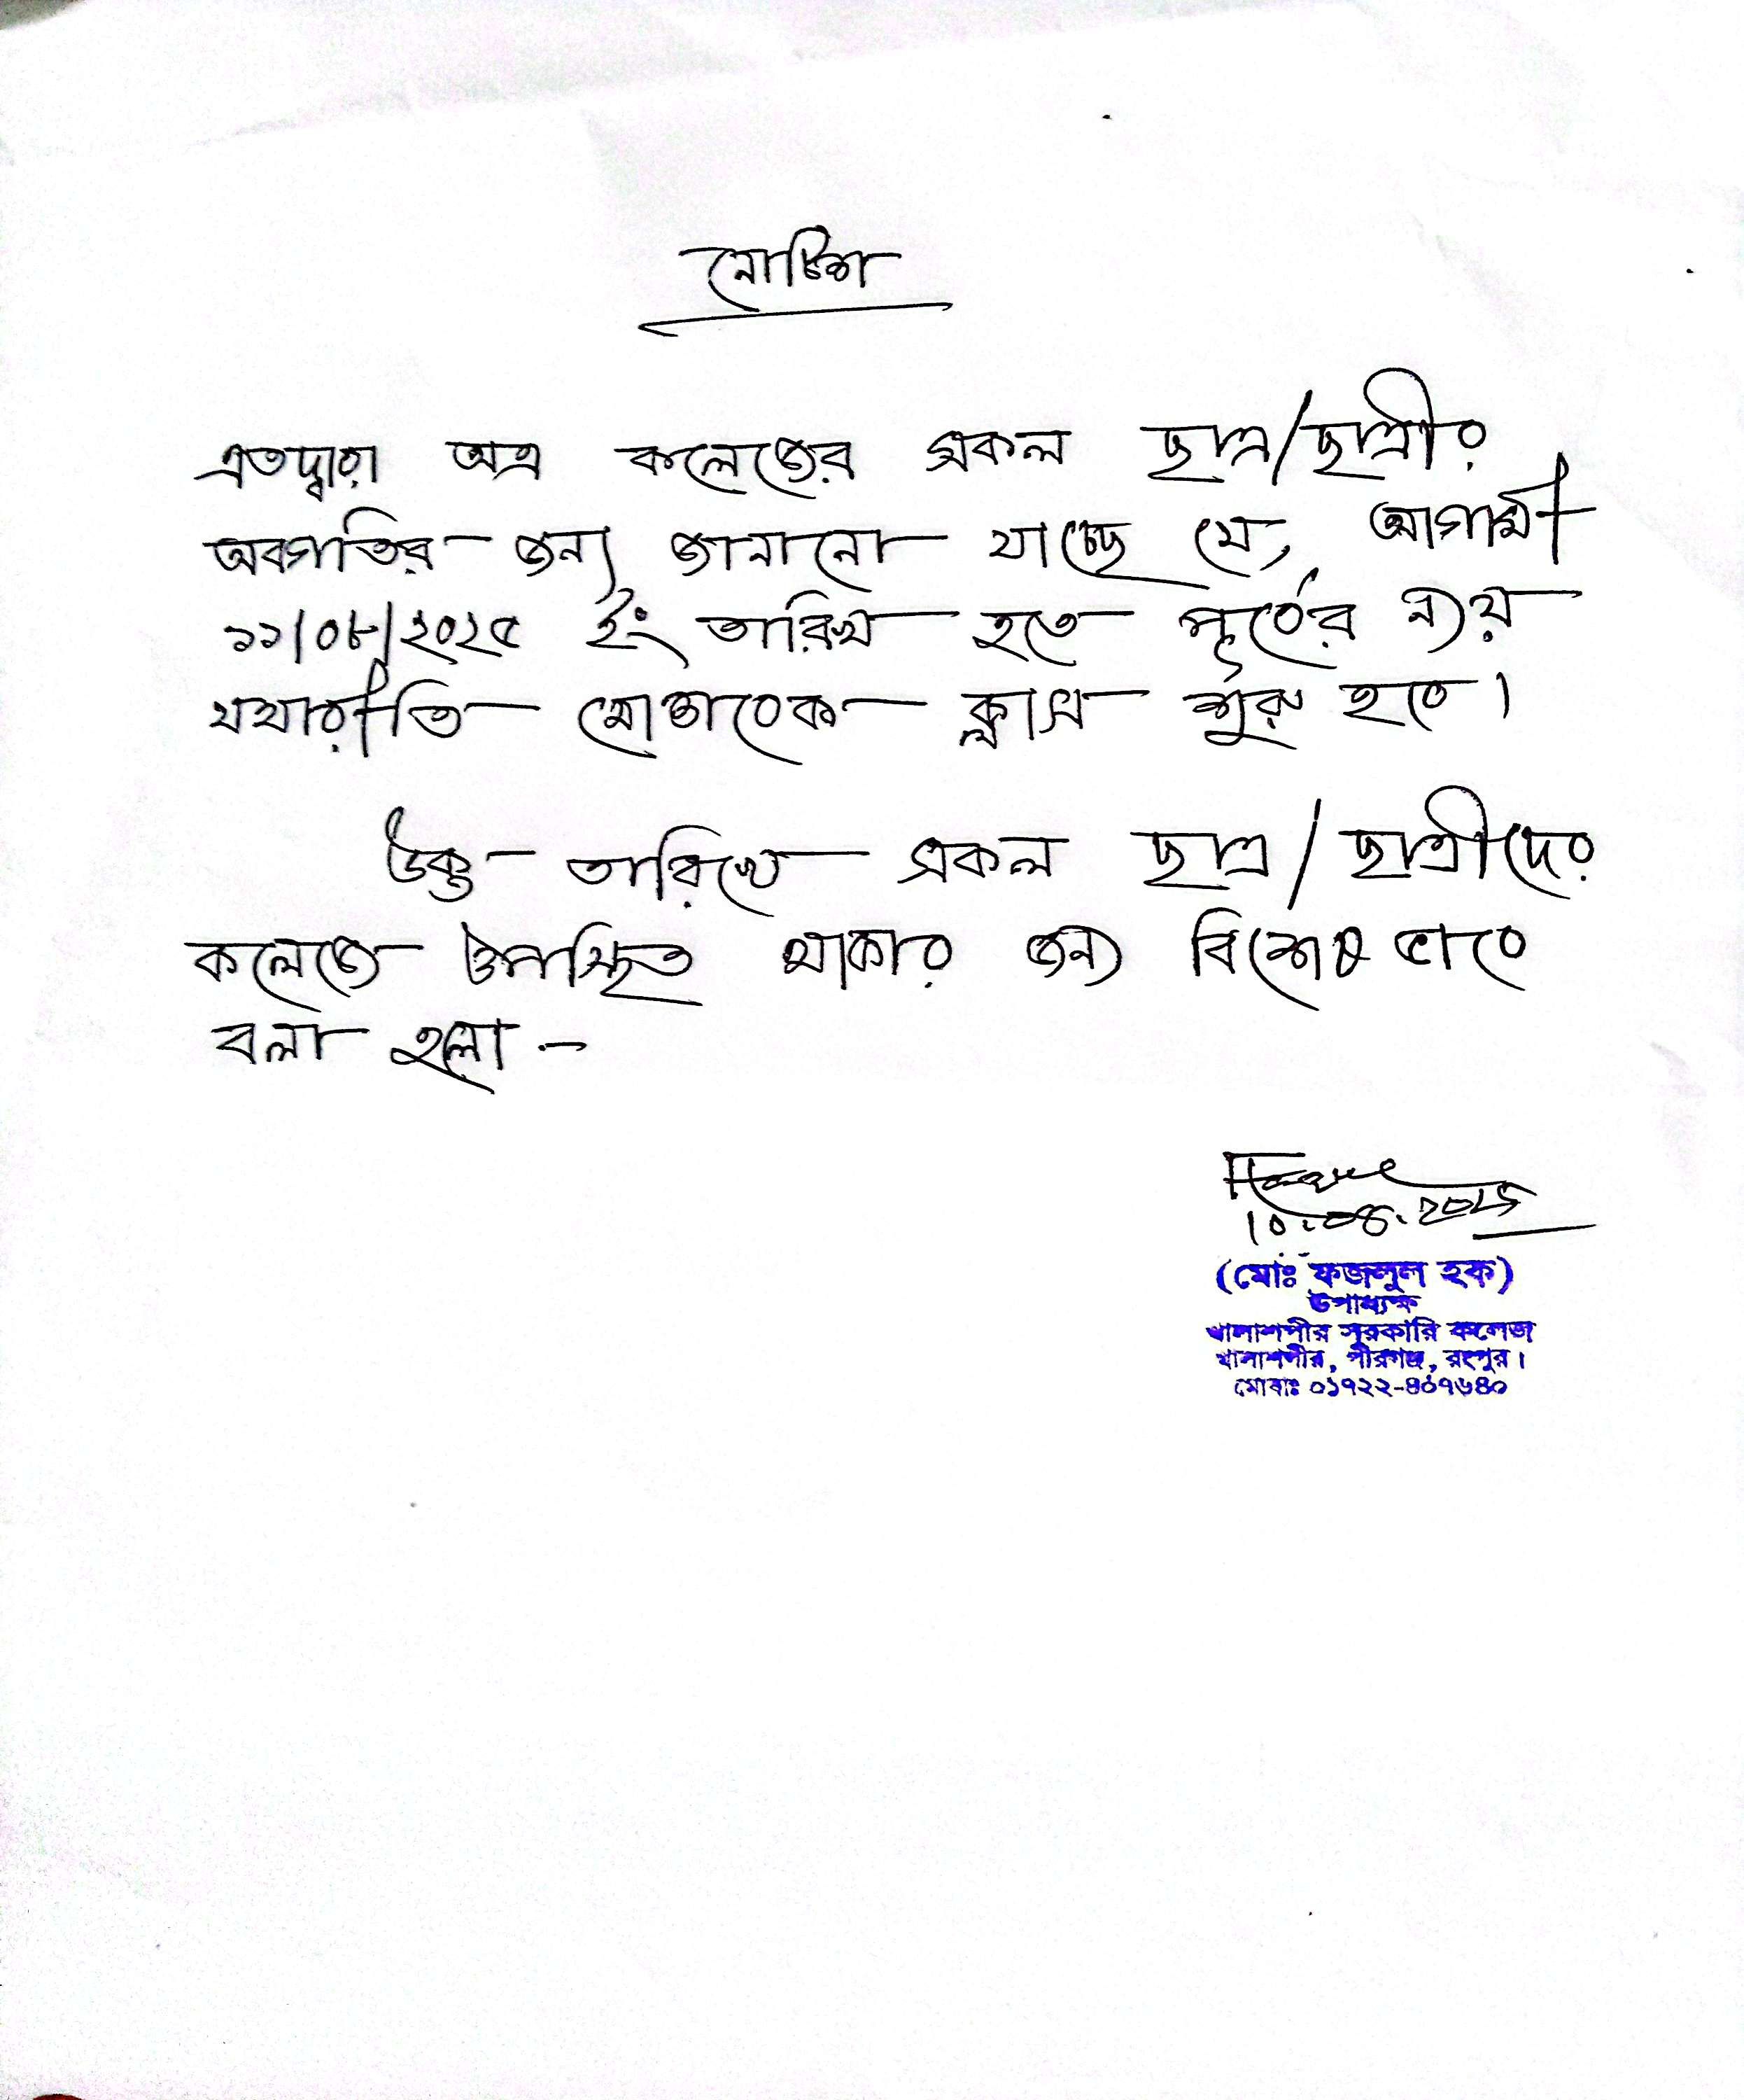 নোটিশ
এতদ্বারা অত্র কলেজের সকল ছাত্র/ছাত্রীর
অবগতির জন্য জানানো যাচ্ছে যে, আগামী
১১/০৮/২০২৫ ইং তারিখ হতে পূর্বের ন্যায়
যথারীতি মোতাবেক ক্লাস শুরু হবে।
উক্ত তারিখে সকল ছাত্র/ছাত্রীদের
কলেজে উপস্থিত থাকার জন্য বিশেষ ভাবে
বলা হলো।-
Haque
10.08.2025
(মোঃ ফজলুল হক)
উপাধ্যক্ষ
খালাশপীর সরকারি কলেজ
খালাশপীর, পীরগঞ্জ, রংপুর।
মোবাঃ ০১৭২২-৪০৭৬৪০